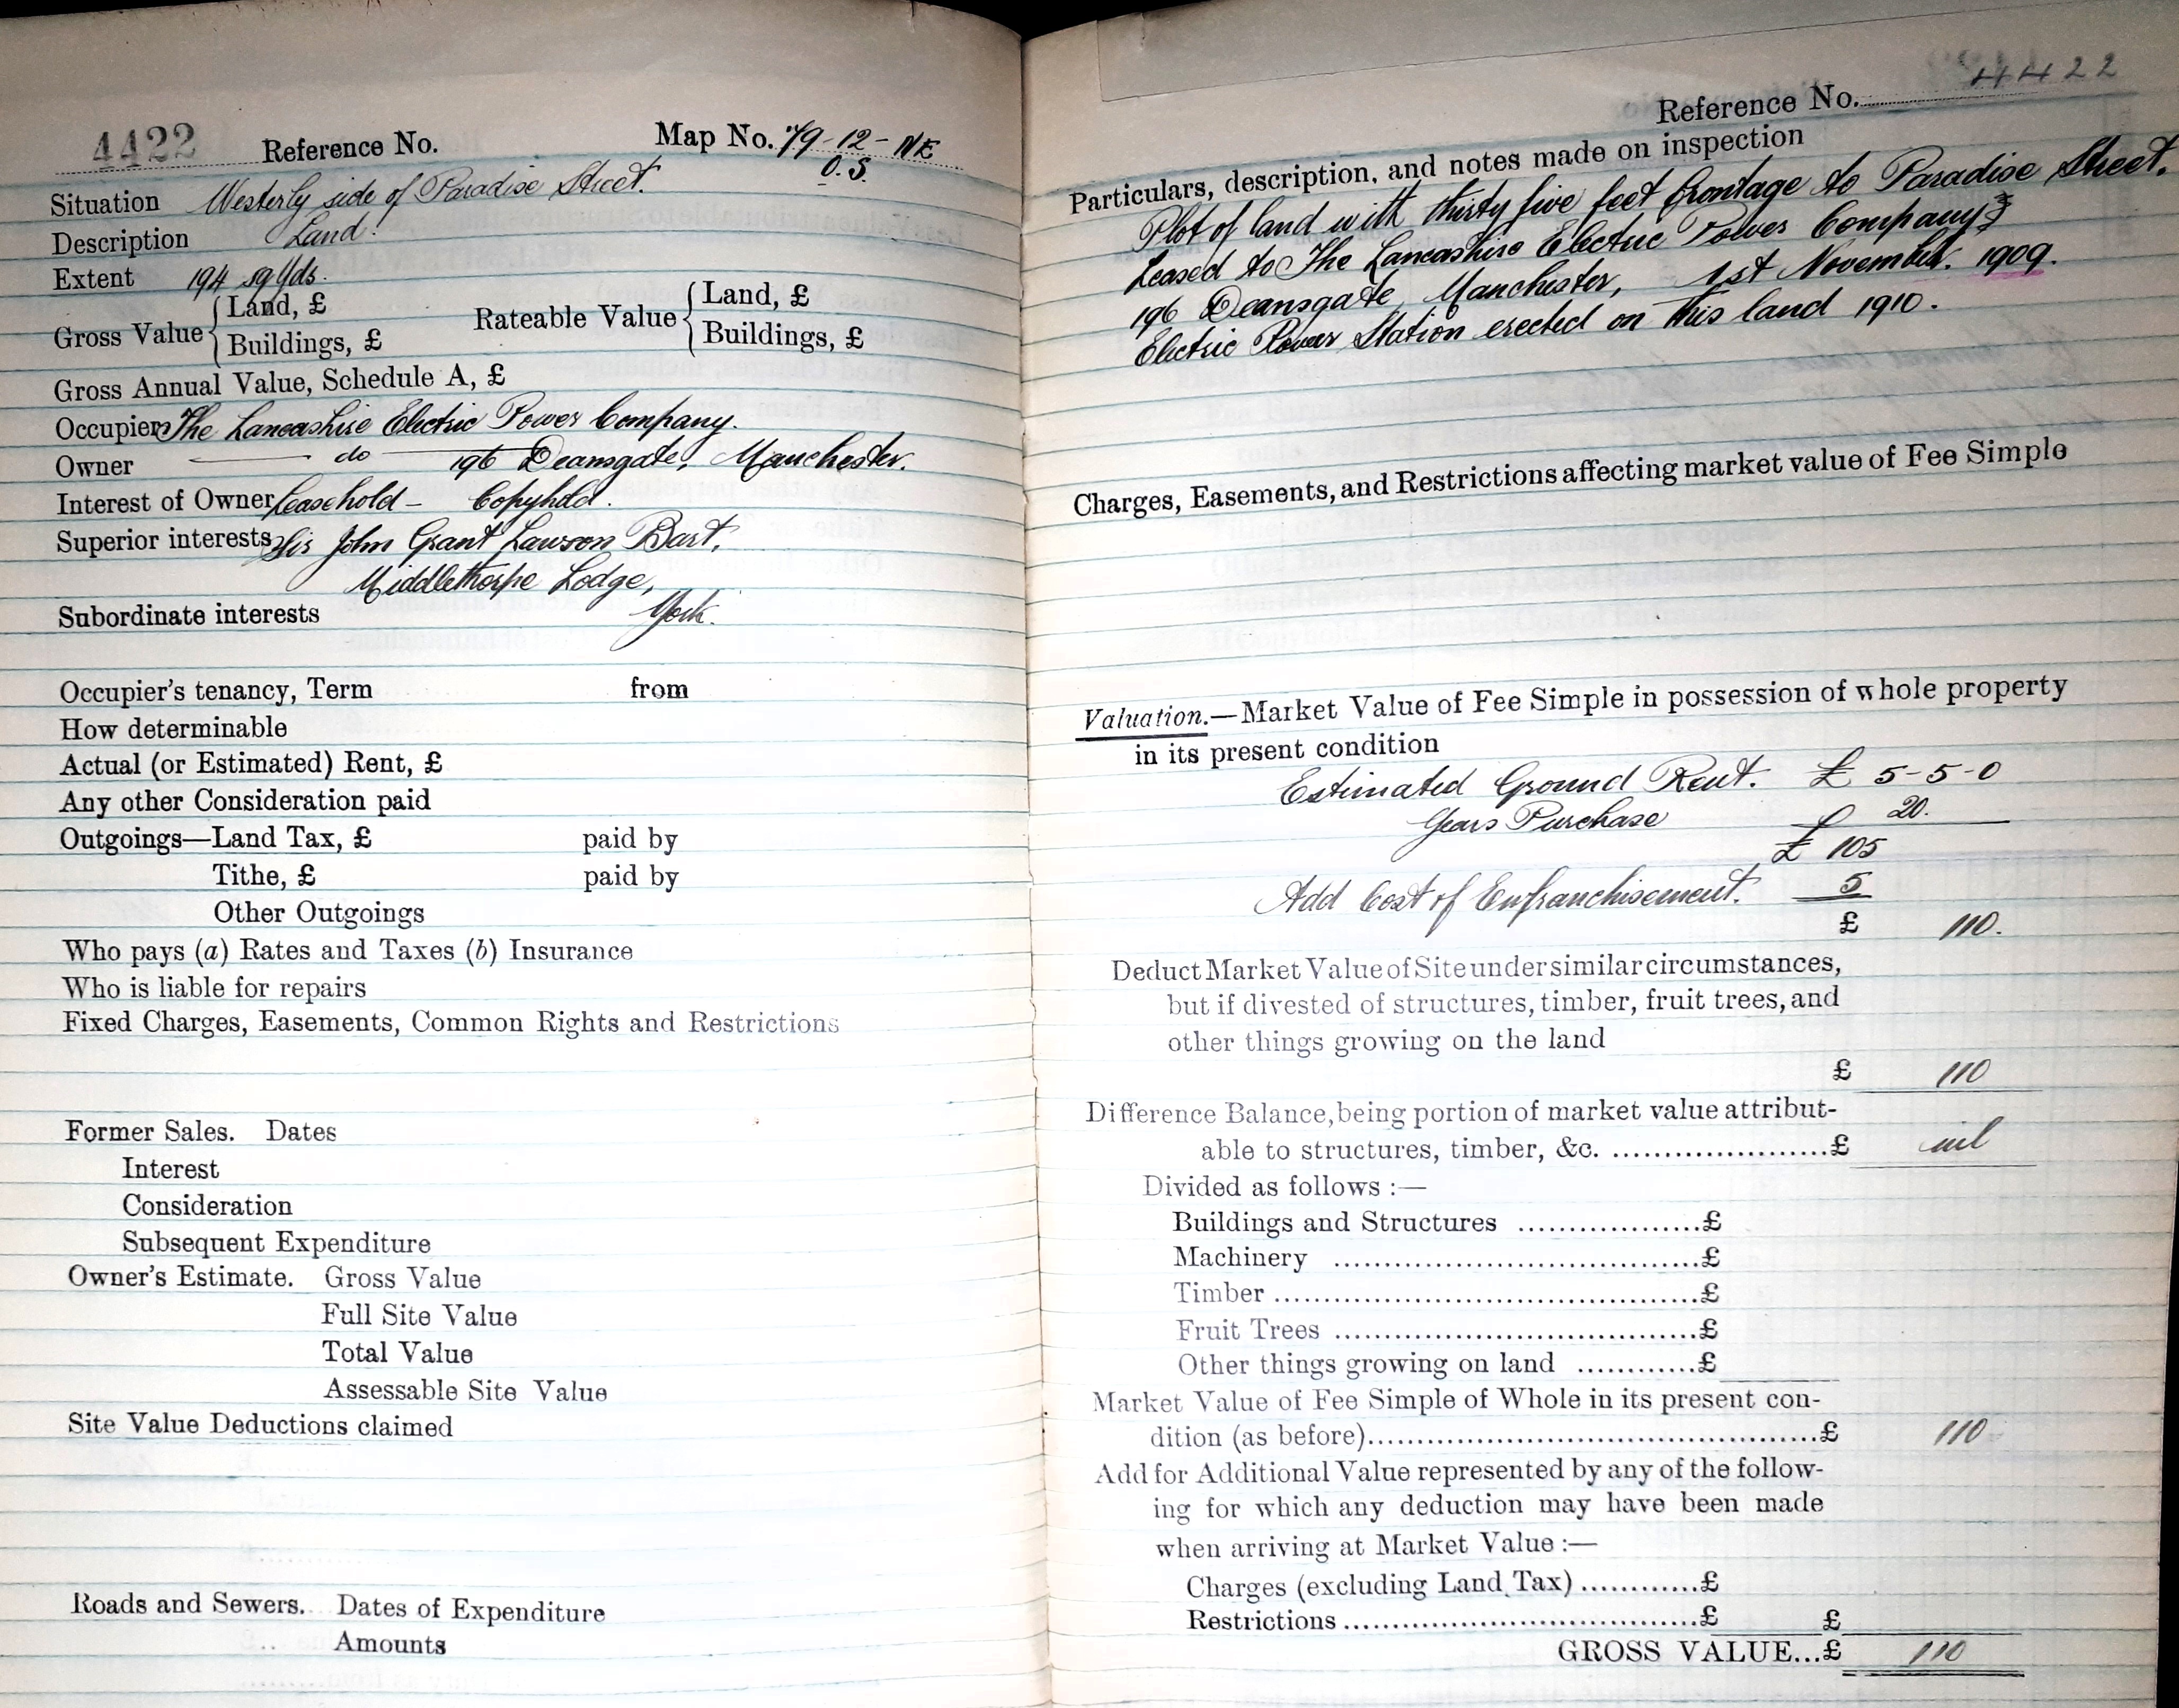 4422 Reference No. Map No. 79-12-NE
O.S.
Situation Westerly side of Paradise Street.
Description Land.
Extent 194 sq Yds.
Gross Value { Land, £ Rateable Value { Land, £
Buildings, £ Buildings, £
Gross Annual Value, Schedule A, £
Occupier The Lancashire Electric Power Company.
Owner — do — 196 Deansgate, Manchester.
Interest of Owner Leasehold - Copyhold.
Superior interests Sir John Grant Lawson Bart,
Middlethorpe Lodge,
Subordinate interests York.
Occupier's tenancy, Term from
How determinable
Actual (or Estimated) Rent, £
Any other Consideration paid
Outgoings—Land Tax, £ paid by
Tithe, £ paid by
Other Outgoings
Who pays (a) Rates and Taxes (b) Insurance
Who is liable for repairs
Fixed Charges, Easements, Common Rights and Restrictions
Former Sales. Dates
Interest
Consideration
Subsequent Expenditure
Owner's Estimate. Gross Value
Full Site Value
Total Value
Assessable Site Value
Site Value Deductions claimed
Roads and Sewers. Dates of Expenditure
Amounts
Reference No. 4422
Particulars, description, and notes made on inspection
Plot of land with thirty five feet frontage to Paradise Street.
Leased to The Lancashire Electric Power Company,
196 Deansgate, Manchester, 1st November. 1909.
Electric Power Station erected on this land 1910.
Charges, Easements, and Restrictions affecting market value of Fee Simple
Valuation.—Market Value of Fee Simple in possession of whole property
in its present condition
Estimated Ground Rent. £ 5-5-0
Years Purchase 20.
£ 105
Add Cost of Enfranchisement. 5
£ 110.
Deduct Market Value of Site under similar circumstances,
but if divested of structures, timber, fruit trees, and
other things growing on the land
£ 110
Difference Balance, being portion of market value attribut-
able to structures, timber, &c. ......................£ nil
Divided as follows :—
Buildings and Structures ..................£
Machinery ..................................£
Timber ........................................£
Fruit Trees ..................................£
Other things growing on land ............£
Market Value of Fee Simple of Whole in its present con-
dition (as before)............................................£ 110
Add for Additional Value represented by any of the follow-
ing for which any deduction may have been made
when arriving at Market Value :—
Charges (excluding Land Tax) ............£
Restrictions ..................................£ £
GROSS VALUE...£ 110